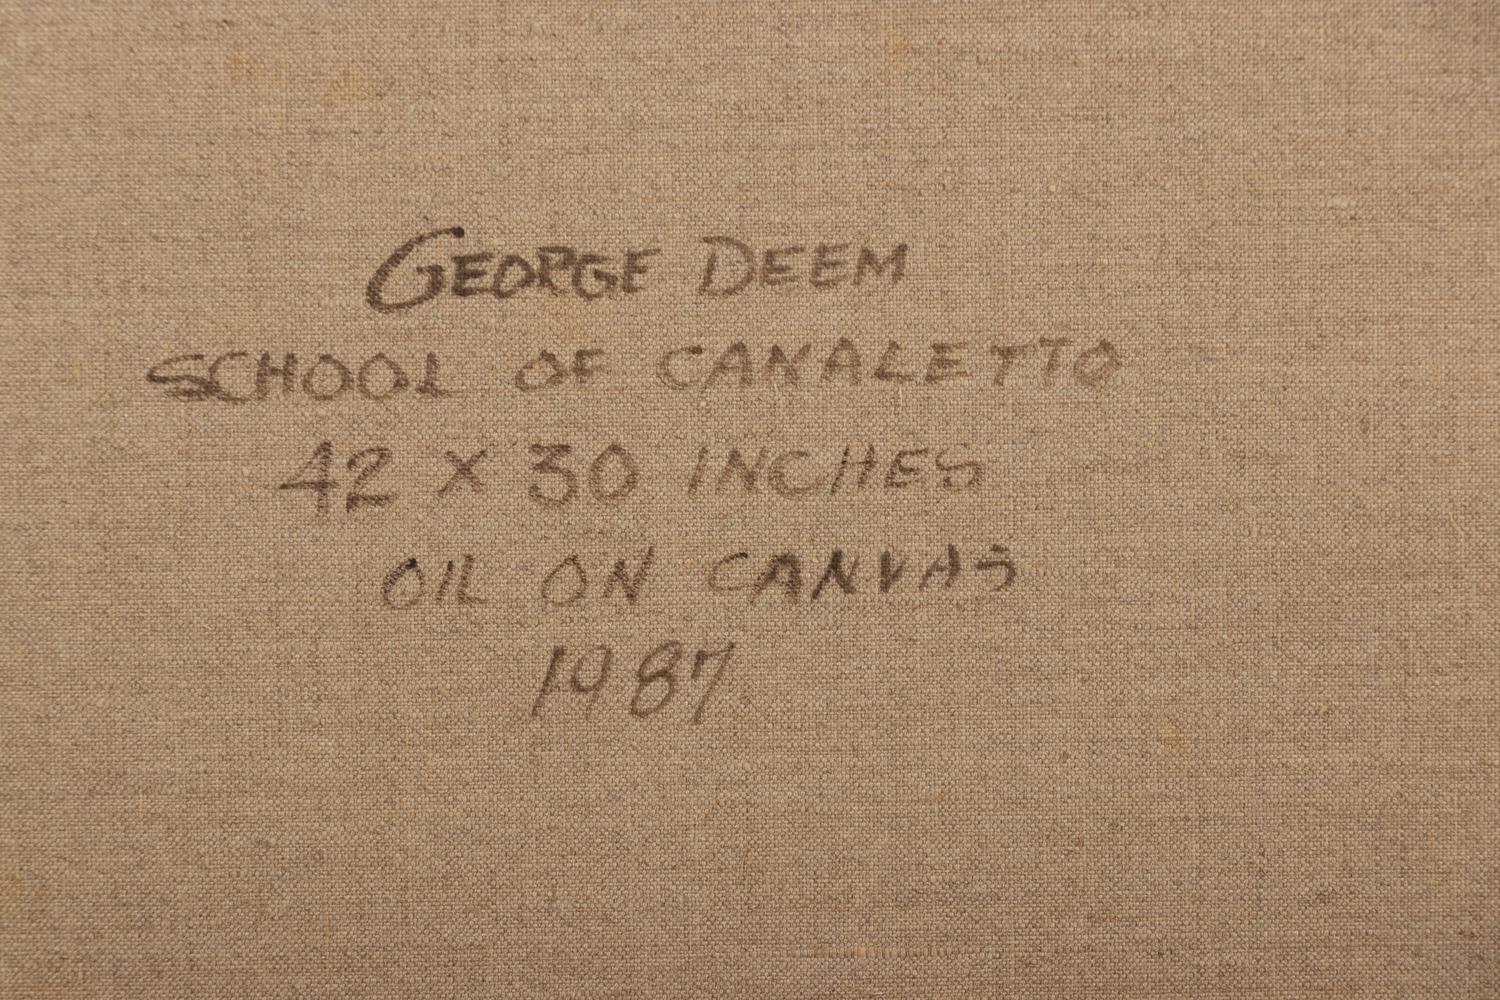 GEORGE DEEM
SCHOOL OF CANALETTO
42 X 30 INCHES
OIL ON CANVAS
1987